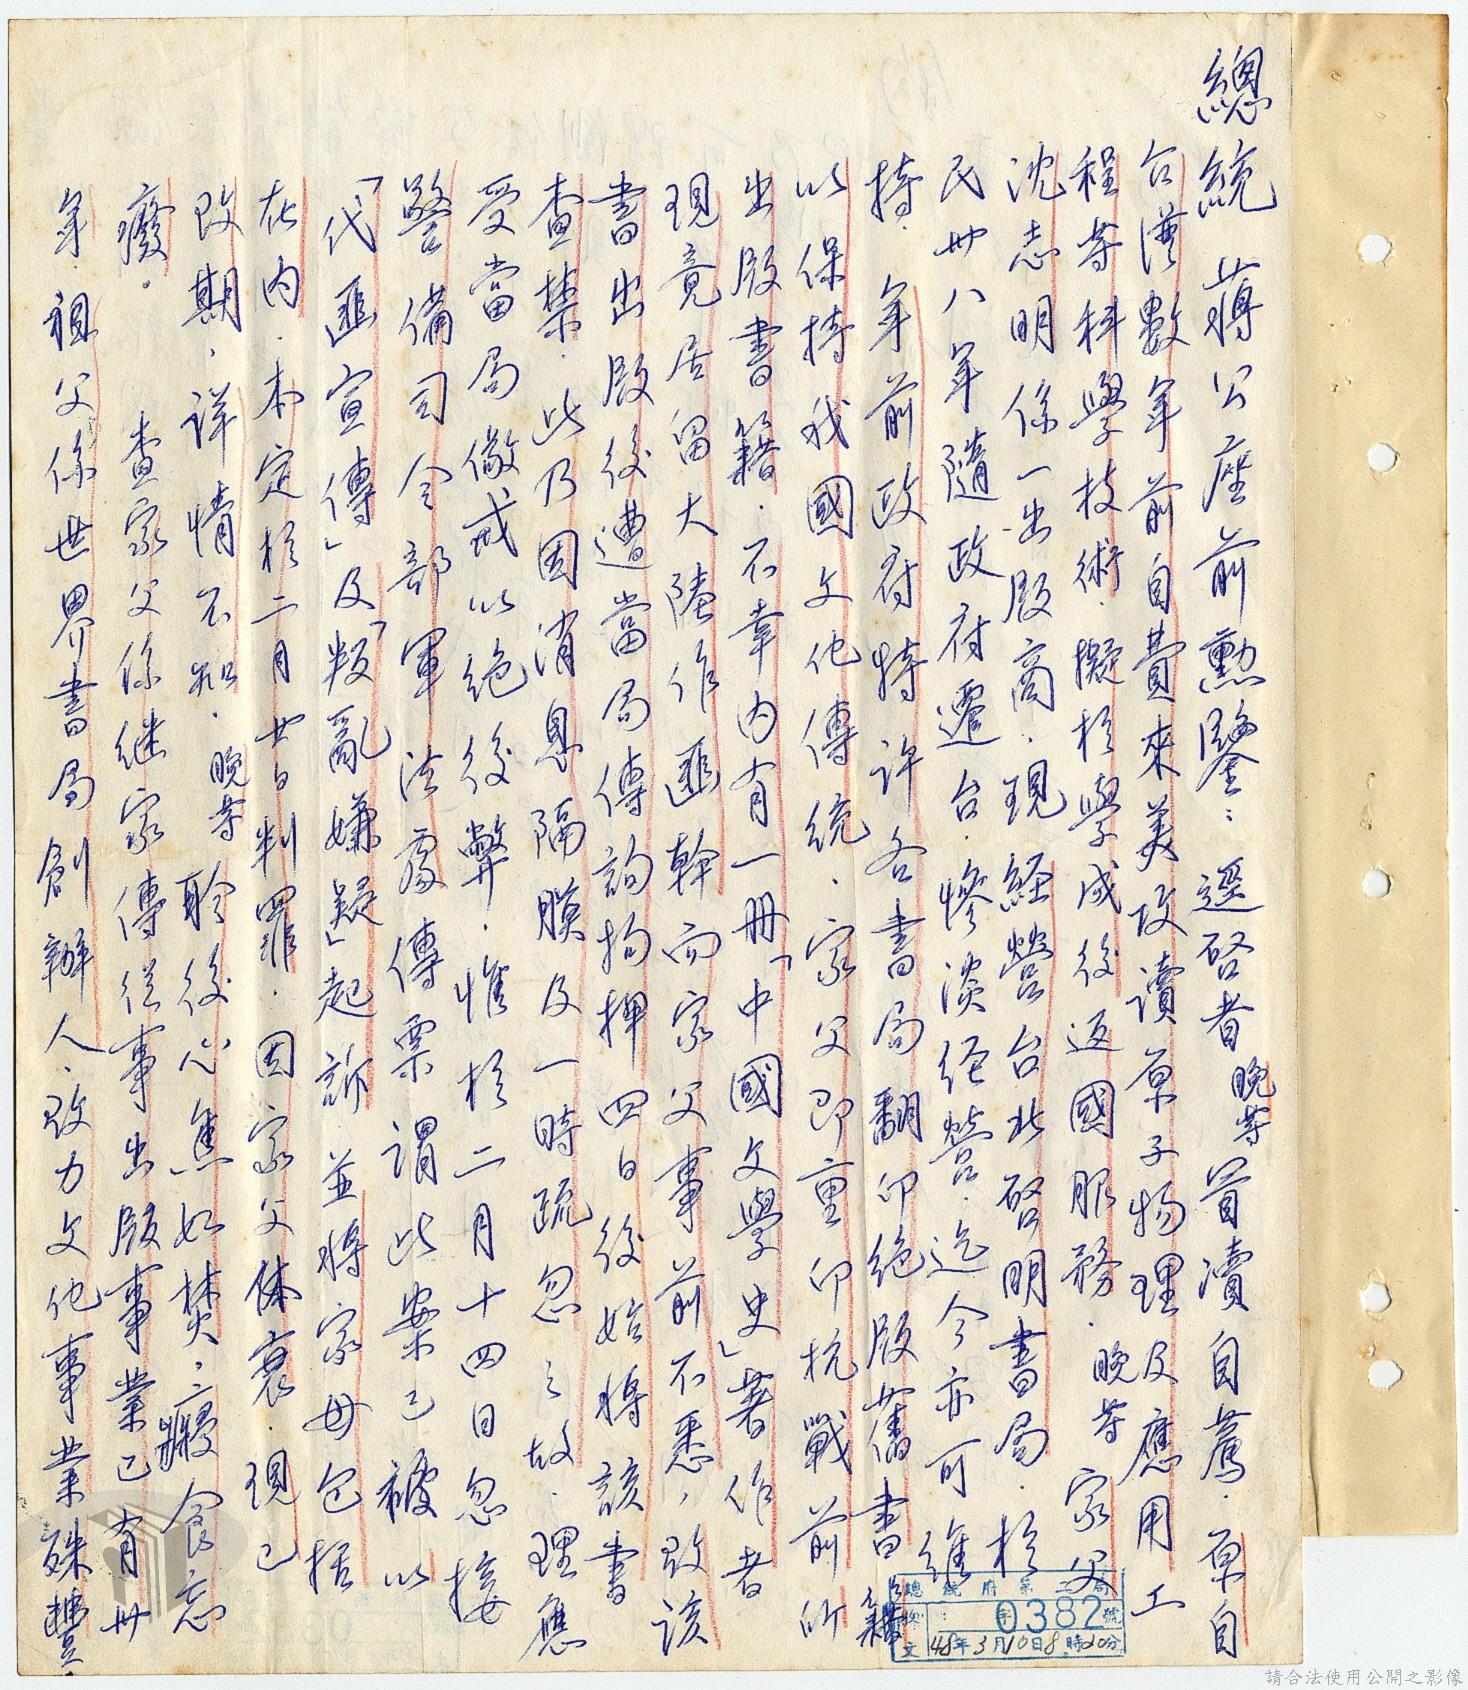 總統蔣公座前勳鑒：逕啓者晚等冒瀆自薦．原自
台灣數年前自費來美攻讀原子物理及應用工
程等科學技術．擬於學成後返國服務．晚等家父
沈志明係一出版商．現經營台北啓明書局．於
民卅八年隨政府遷台．慘淡經營．迄今亦可維
持．年前政府特許各書局翻印絕版舊書籍
以保持我國文化傳統．家父即重印抗戰前所
出版書籍．不幸內有一冊「中國文學史」著作者
現竟居留大陸作匪幹而家父事前不悉，致該
書出版後遭當局傳詢拘押四日後始將該書
查禁．此乃因消息隔膜及一時疏忽之故．理應
受當局儆戒以絕後弊．惟於二月十四日忽接
警備司令部軍法處傳票謂此案已被以
「代匪宣傳」及「叛亂嫌疑」起訴並將家母包括
在內．本定於二月廿日判罪．因家父体衰．現已
改期，詳情不知．晚等聆後心焦如焚，寢食忘
癈．查家父係继家傳從事出版事業已有卅
年．祖父係世界書局創辦人，致力文化事業殊豐
總統府第二局
收文 字0382號
48年3月10日8時20分
請合法使用公開之影像